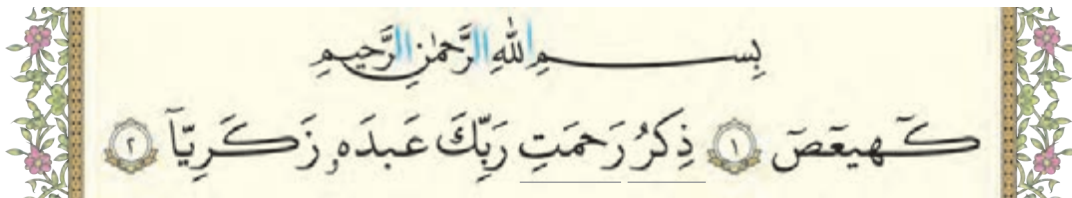 بِسْمِ اللَّهِ الرَّحْمَٰنِ الرَّحِيمِ
كٓهيعٓصٓ ۝١ ذِكْرُ رَحْمَتِ رَبِّكَ عَبْدَهُۥ زَكَرِيَّآ ۝٢